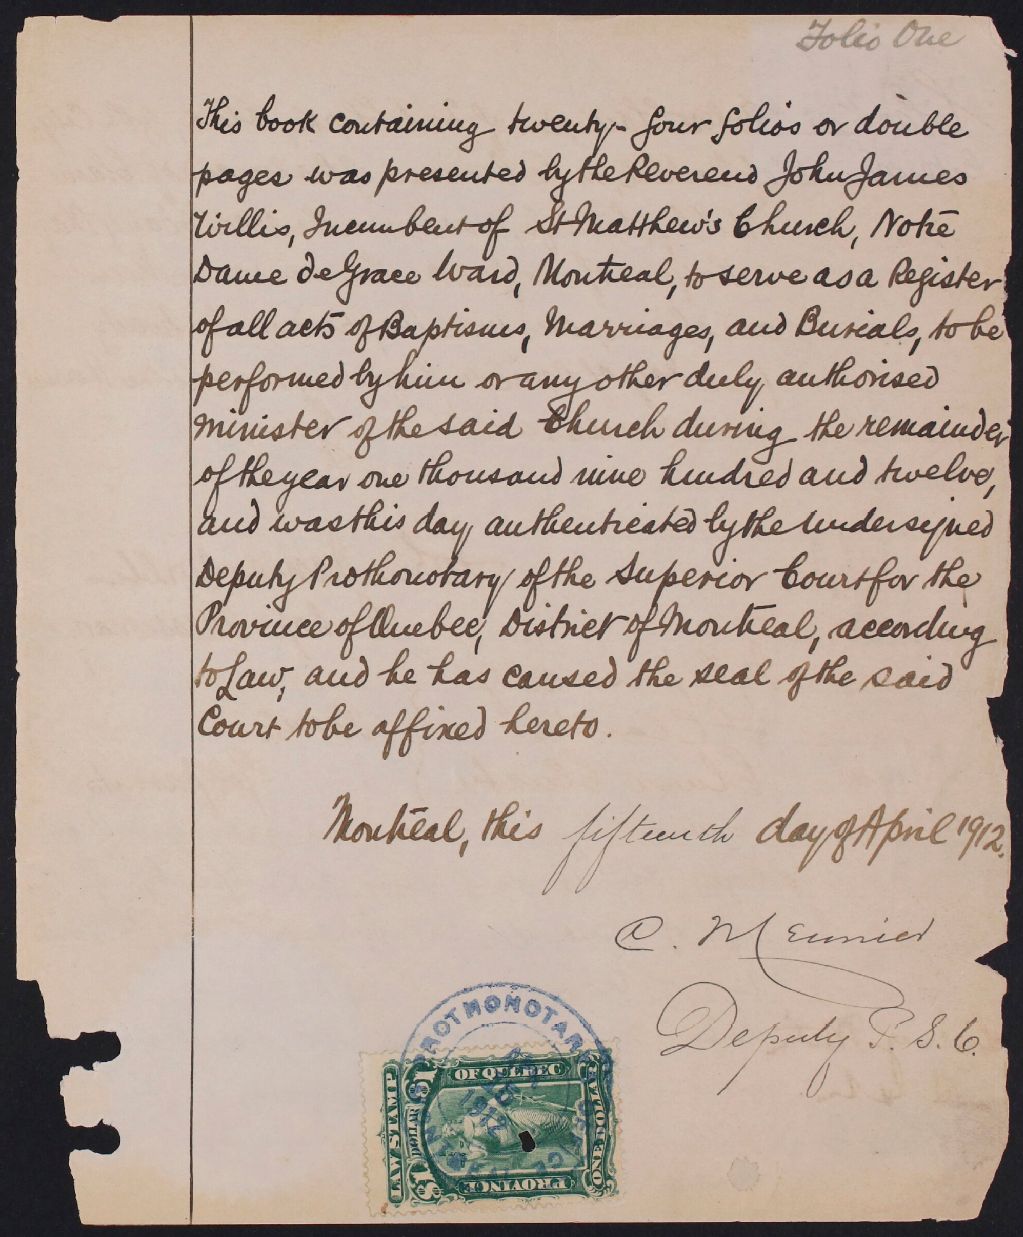 Folio One
This book containing twenty-four folios or double
pages was presented by the Reverend John James
Willis, Incumbent of St Matthew's Church, Notre
Dame de Grace Ward, Montreal, to serve as a Register
of all acts of Baptisms, Marriages, and Burials, to be
performed by him or any other duly authorised
minister of the said Church during the remainder
of the year one thousand nine hundred and twelve,
and was this day authenticated by the undersigned
Deputy Prothonotary of the Superior Court for the
Province of Quebec, District of Montreal, according
to Law, and he has caused the seal of the said
Court to be affixed hereto.
Montreal, this fifteenth day of April 1912.
C. Meunier
Deputy P. S. C.
PROTHONOTARY
15
1912
LAW STAMP
$1 DOLLAR $1
OF QUEBEC
PROVINCE
ONE DOLLAR